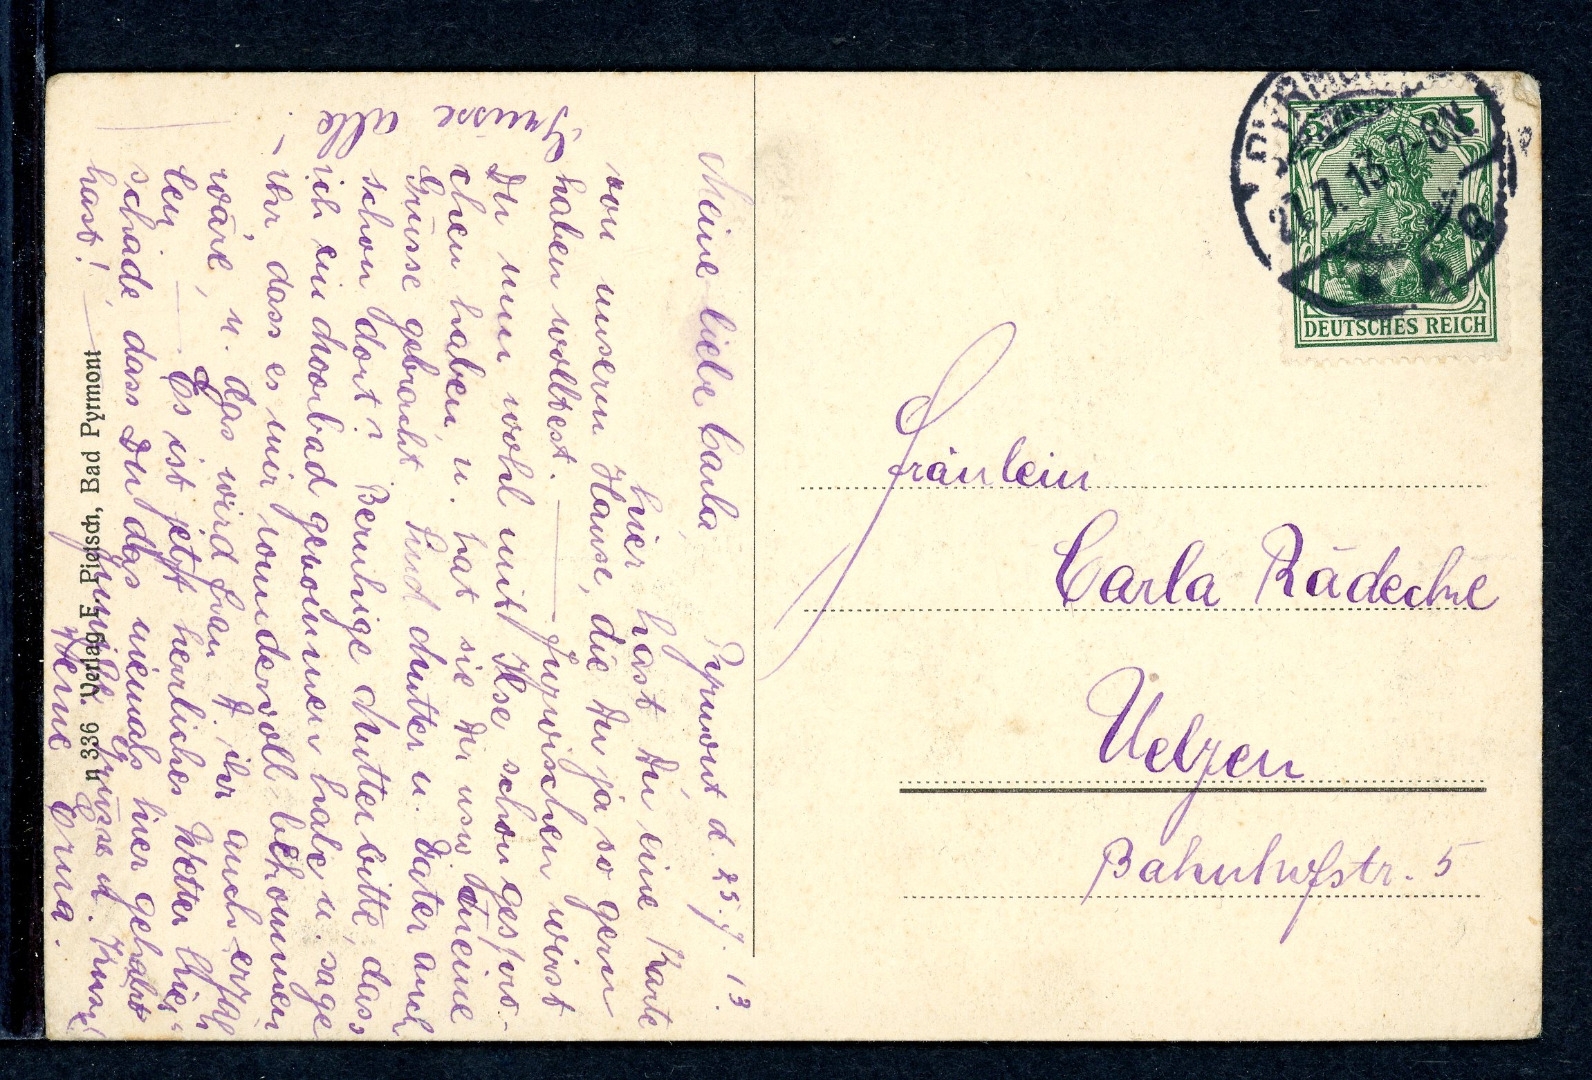 Pyrmont d. 25.7.13.
Meine liebe Carla,
hier hast Du eine Karte
von unserm Hause, die Du ja so gern
haben wolltest. — Inzwischen wirst
Du nun wohl mit Ilse schon gespro-
chen haben, u. hat sie Dir usw meine
Grüsse gebracht. Sind Mutter u. Vater auch
schon dort? Beruhige Mutter bitte, dass
ich ein Moorbad genommen habe u. sage
ihr dass es mir wundervoll bekommen
wäre, u. das wird Frau D. ihr auch erzäh
len. — Es ist jetzt herrliches Wetter hier,
schade dass Du das niemals hier gehabt
hast! —
Innigste Grüsse u. Kuss!
Deine Erna.
Grüsse alle!
n 336 Verlag F. Pietsch, Bad Pyrmont
DEUTSCHES REICH
PYRMONT
27.7.13 7-8N.
Fräulein
Carla Rädecke
Uelzen
Bahnhofstr. 5